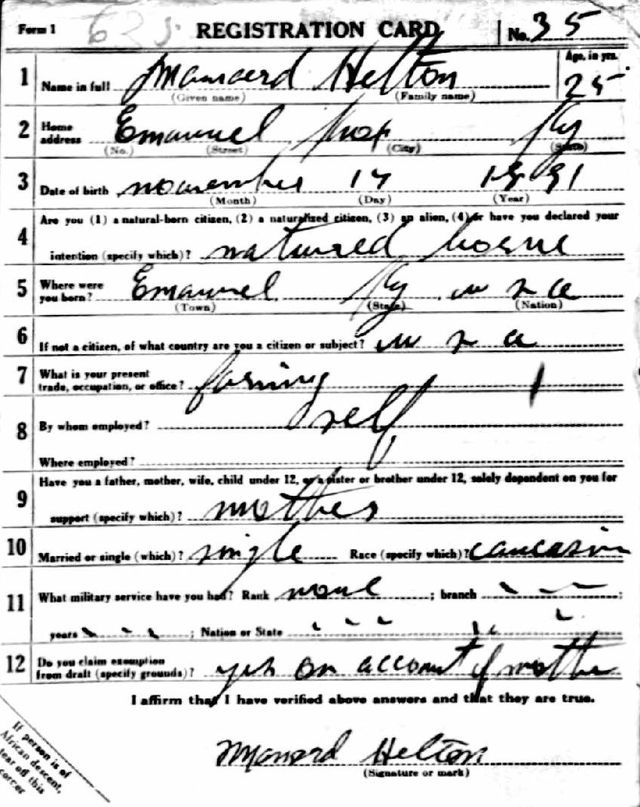 Form 1 REGISTRATION CARD No. 35
Age, in yrs.
1 Name in full Helton 25
(Given name) (Family name)
2 Home address Emanuel Knox Ky
(No.) (Street) (City) (State)
3 Date of birth 17 1891
(Month) (Day) (Year)
Are you (1) a natural-born citizen, (2) a naturalized citizen, (3) an alien, (4) or have you declared your
4 intention (specify which)? natured borne
5 Where were you born? Emanuel Ky u s a
(Town) (State) (Nation)
6 If not a citizen, of what country are you a citizen or subject? u s a
7 What is your present trade, occupation, or office? farming
8 By whom employed? self
Where employed?
Have you a father, mother, wife, child under 12, or a sister or brother under 12, solely dependent on you for
9 support (specify which)? mother
10 Married or single (which)? single Race (specify which)? caucasin
11 What military service have you had? Rank none ; branch ;
years ; Nation or State
12 Do you claim exemption from draft (specify grounds)? yes on account of mother
I affirm that I have verified above answers and that they are true.
Manard Helton
(Signature or mark)
If person is of
African descent,
tear off this
corner